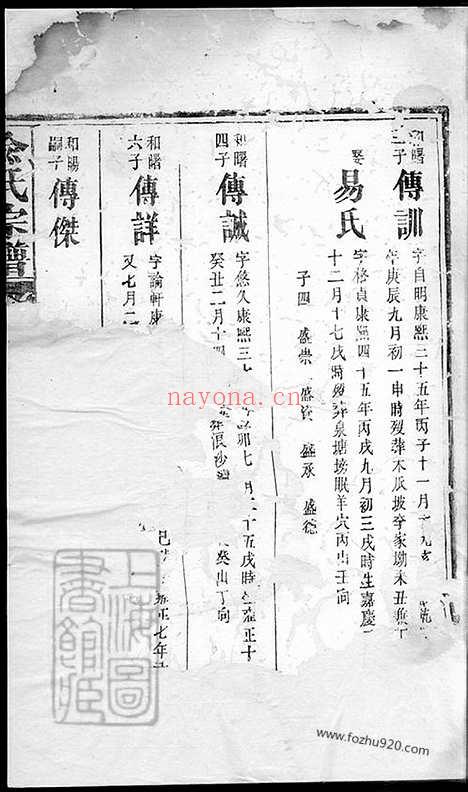 和曙
三子
傳訓
字自明康熙三十五年丙子十一月
年庚辰九月初一申時歿葬木瓜坡李家坳未丑
娶
易氏
字格貞康熙四十五年丙戌九月初三戌時生嘉慶
十二月十七戌時歿葬泉塘塝眠羊穴丙山壬向
子四 盛崇 盛資 盛承 盛德
和曙
四子
傳誠
字悠久康熙三
卯七月二十五戌時
雍正十
癸丑二月十四
葬浪沙
癸山丁向
和曙
六子
傳詳
字論軒康
又七月二
巳
正七年
和陽
嗣子
傳傑
氏宗譜
上海圖書館藏
nayona.cn
www.fozhu920.com